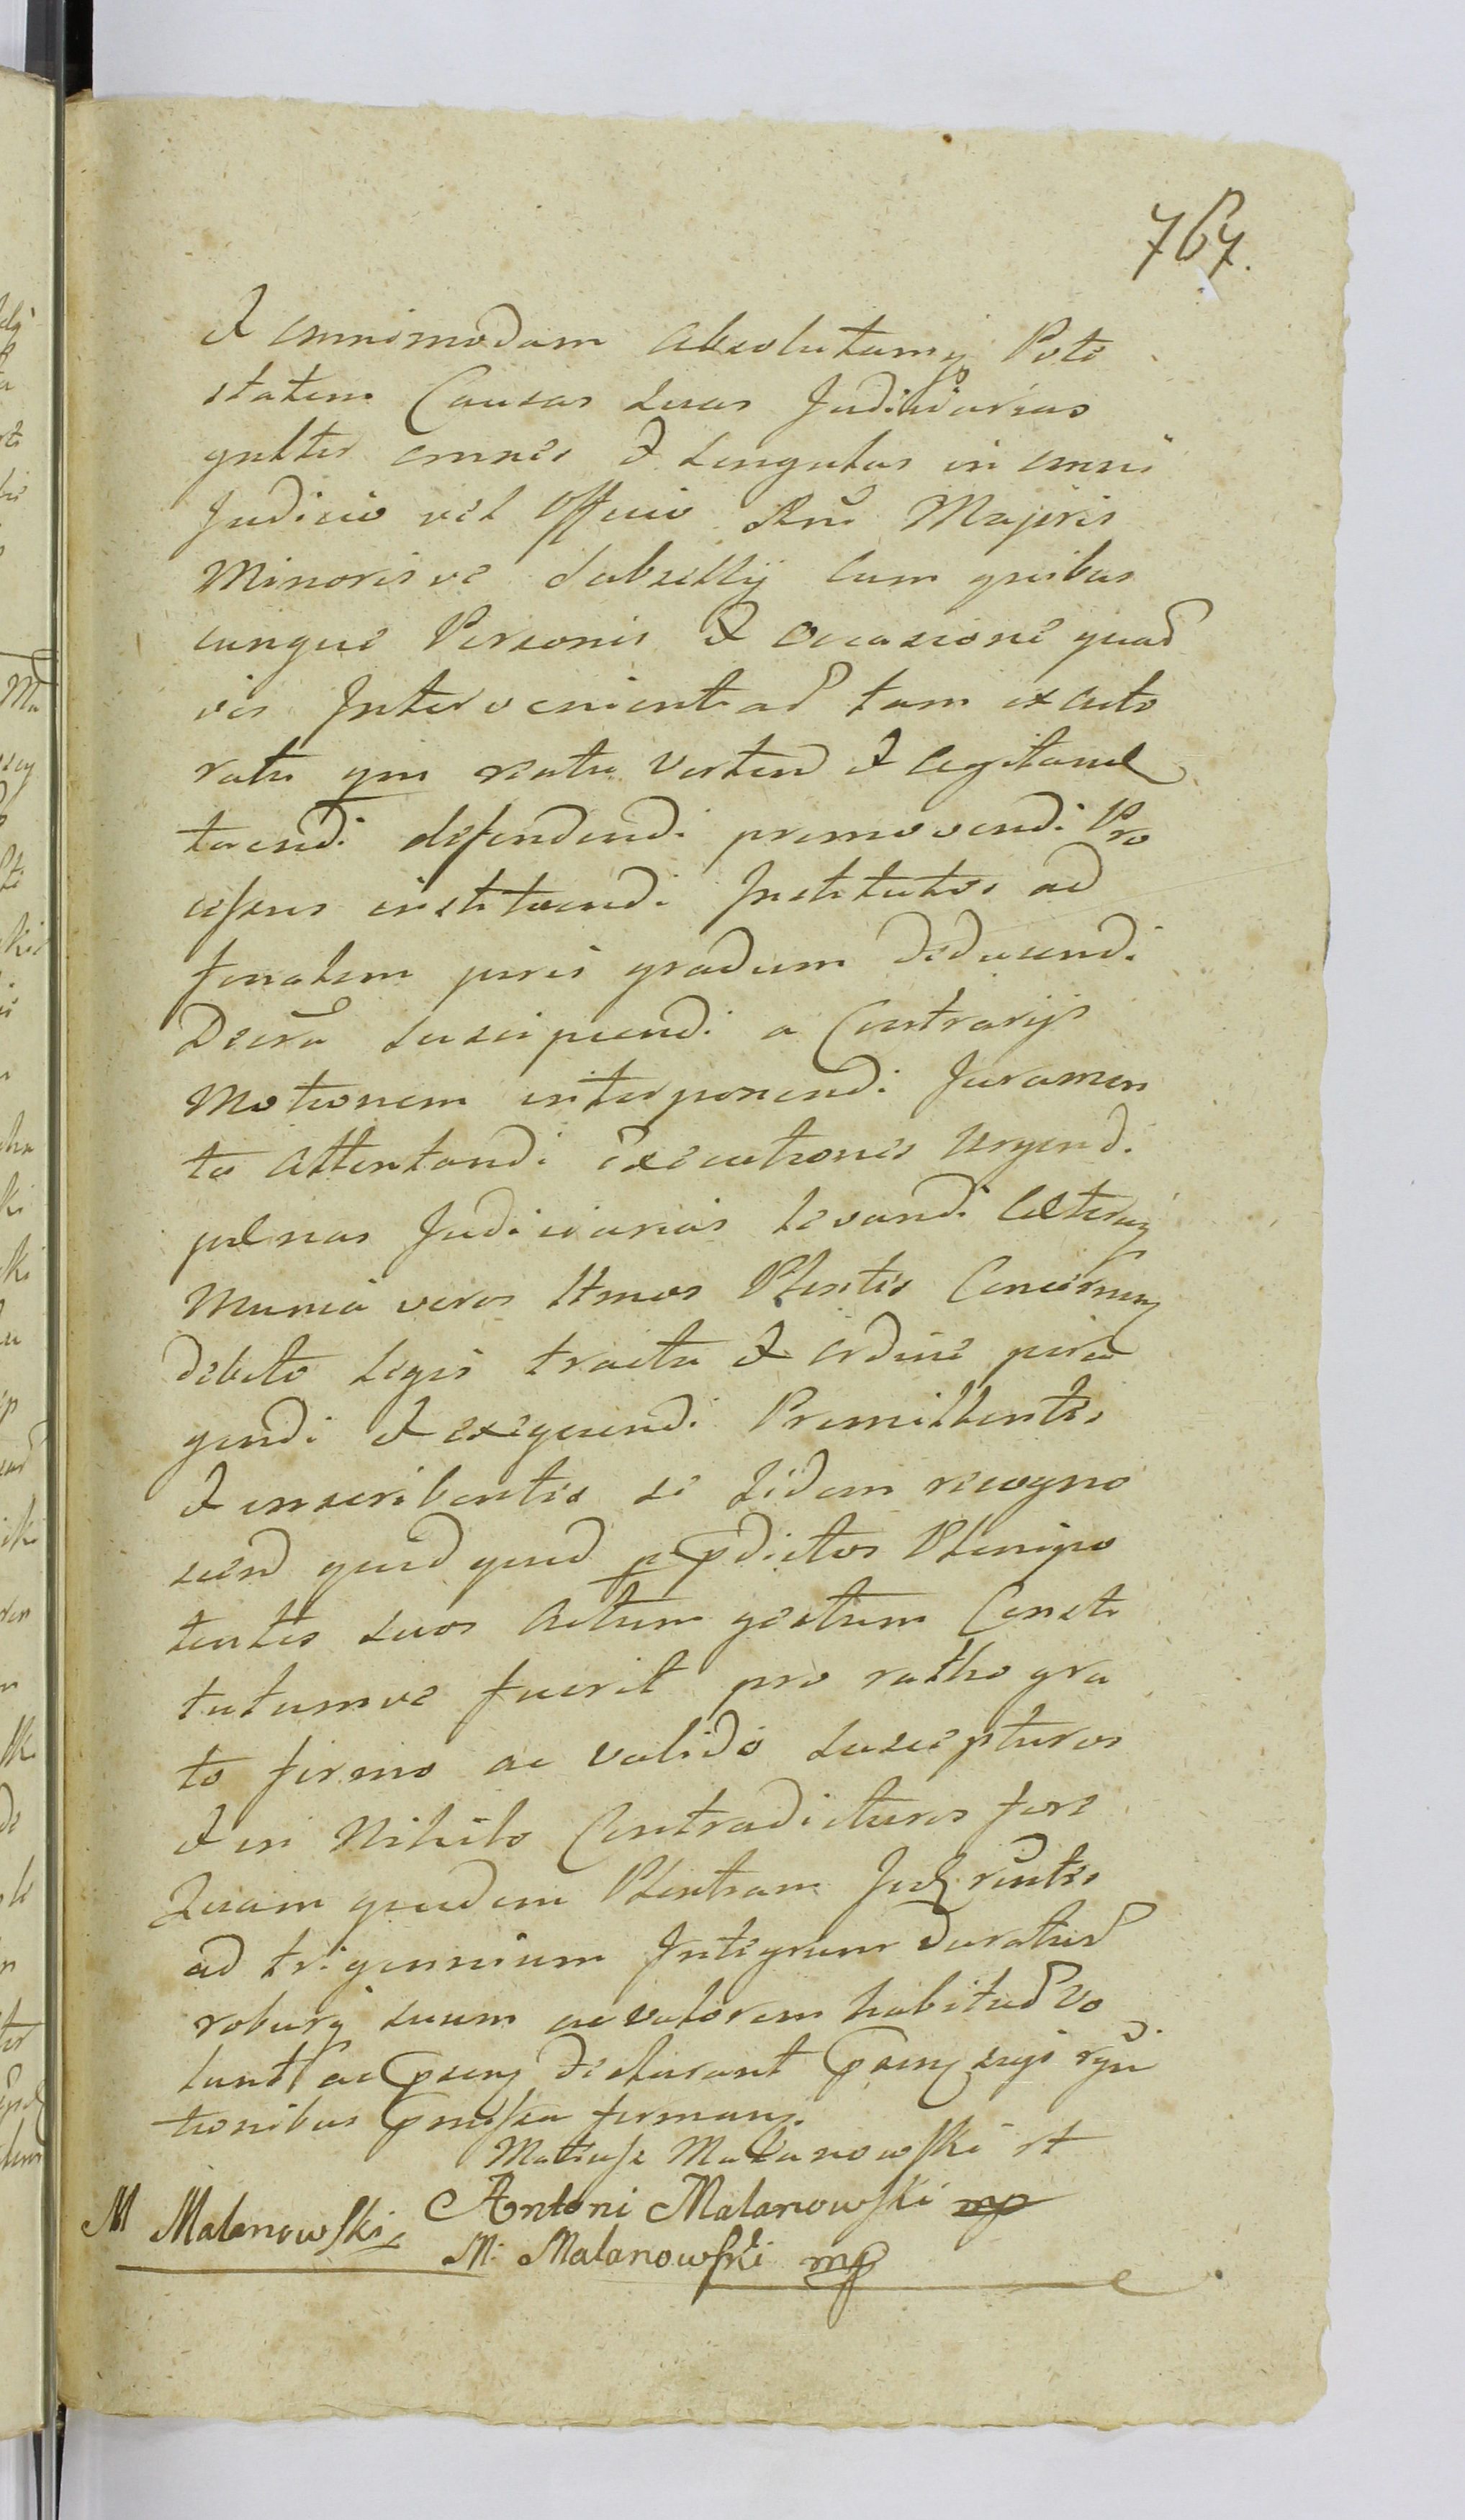 767.
Et omnimodam absolutamq Pote
statem Causas suas Judiciarias
gnlter omnes et singulas in omni
Judicio vel Officio Rni Majoris
Minorisve Subsellij cum quibus
cunque Personis et occasione quad
vis Intervenientad tam ex acto
ratu qm reatu verten et agitand
tuendi defendendi promovendi Pro
cessus instituendi Institutos ad
finalem juris gradum deducendi
Decra suscipiendi a Contrarijs
Motionem interponendi Juramen
ta attentandi executiones urgendi
pœnas Judiciarias levandi Cæteraq
Munia veros Ltmos Plentes Concernen
debito legis tractu et ordine pera
gendi et exequendi Promittentes
et inscribentes se iidem recogno
scen quidquid p pdictos Plenipo
tentes suos actum gestum Consti
tutumve fuerit pro ratho gra
to firmo ac valido suscepturos
et in Nihilo Contradicturos fore
Quam quidem Plentiam rcntes
ad trigennium Integrum duratur
roburq suum ac valorem habitur vo
lunt ac psenq declarant psenq suis rgni
tionibus pmissa firman.
Mateusz Malanowski rt
M Malanowski Antoni Malanowski mp
M. Malanowski mp